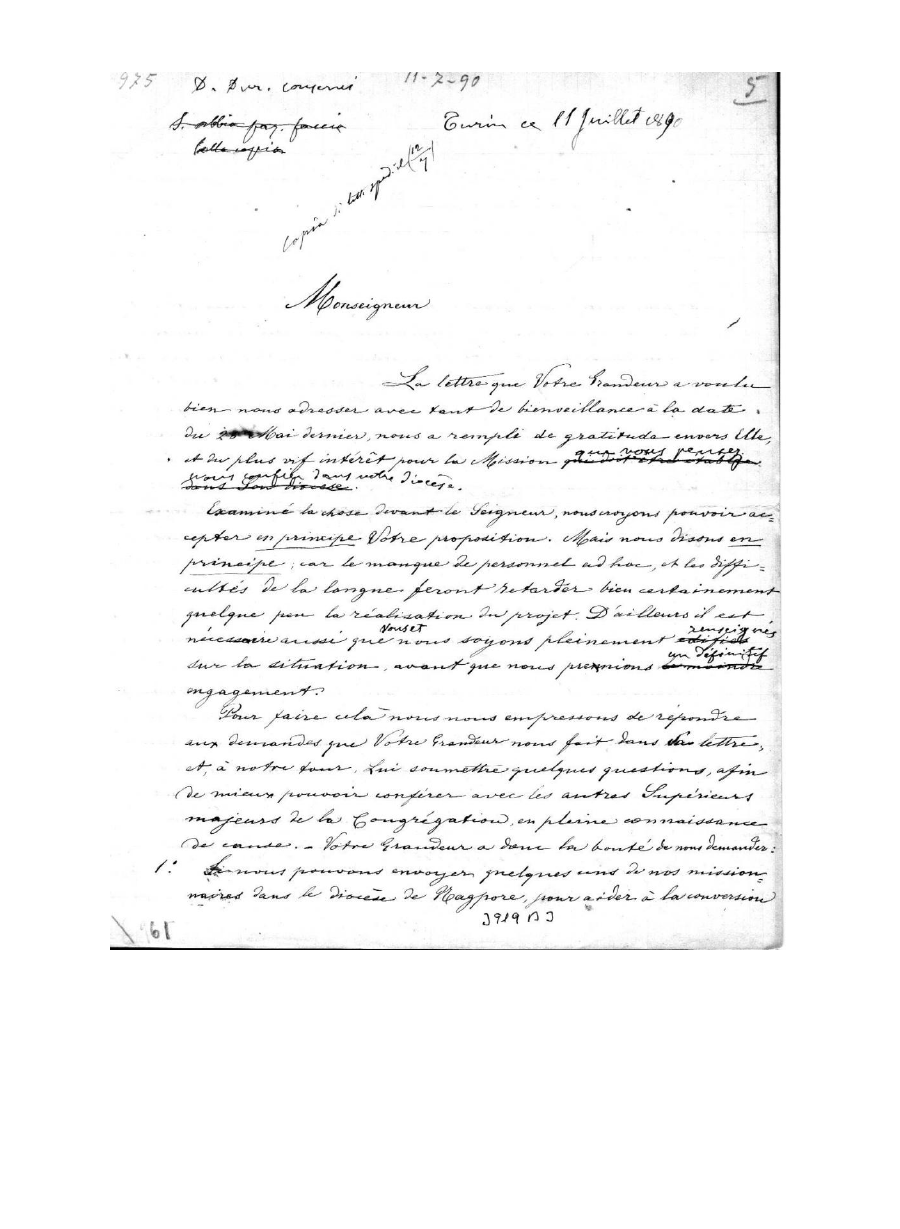 975
11-7-90
5
D. Dur. conservi
S. abbia faccia
bella copia
Turin ce 11 Juillet 1890
Copia di lett. spedite (12/7)
Monseigneur
La lettre que Votre Grandeur a voulu
bien nous adresser avec tant de bienveillance à la date
du Mai dernier, nous a rempli de gratitude envers Elle,
que vous pensez
et du plus vif intérêt pour la Mission que doit être établie
nous confier dans votre diocèse.
dans Son diocèse.
Examiné la chose devant le Seigneur, nous croyons pouvoir ac=
cepter en principe Votre proposition. Mais nous disons en
principe; car le manque de personnel ad hoc, et les diffi=
cultés de la langue feront retarder bien certainement
quelque peu la réalisation du projet. D'ailleurs il est
renseignés
nécessaire aussi que nous soyons pleinement édifiés
un définitif
sur la situation, avant que nous prennions le moindre
engagement.
Pour faire celà nous nous empressons de répondre
aux demandes que Votre Grandeur nous fait dans Sa lettre,
et, à notre tour, Lui soumettre quelques questions, afin
de mieux pouvoir conférer avec les autres Supérieurs
majeurs de la Congrégation, en pleine connaissance
de cause. - Votre Grandeur a donc la bonté de nous demander:
1.° Si nous pouvons envoyer quelques uns de nos mission=
naires dans le diocèse de Nagpore, pour aider à la conversion
3919 B 3
961